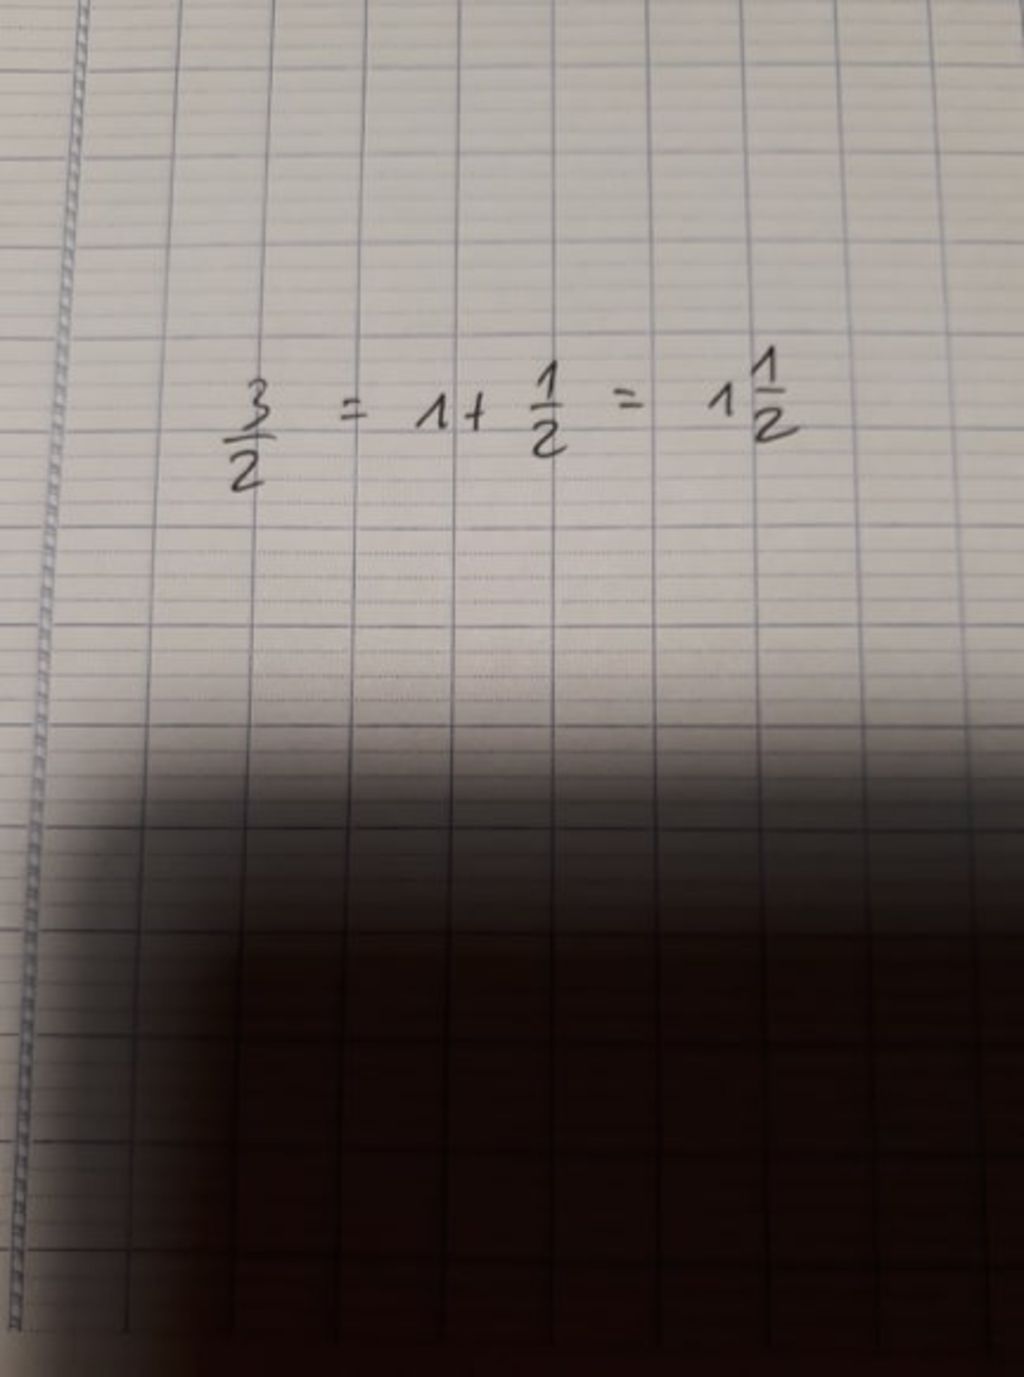 3/2 = 1 + 1/2 = 1 1/2